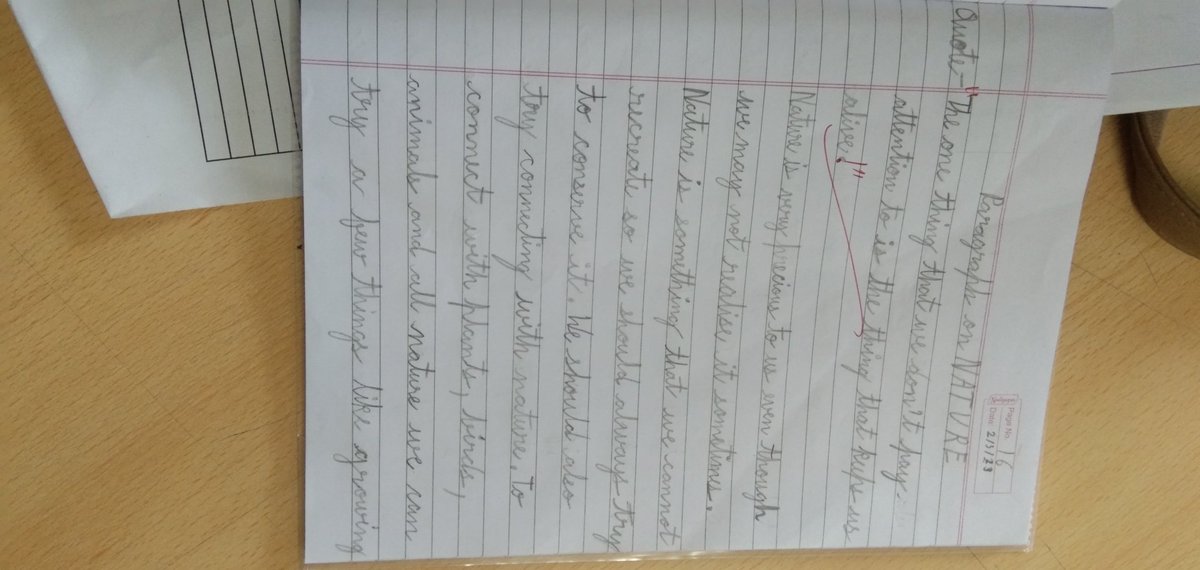 Page No. 16
Date: 2/3/23
Paragraph on NATURE
Quote - "The one thing that we don't pay
attention to is the thing that keeps us
alive!"
Nature is very precious to us even though
we may not realise it sometimes.
Nature is something that we cannot
recreate so we should always try
to conserve it. We should also
try connecting with nature. To
connect with plants, birds,
animals and all nature we can
try a few things like growing